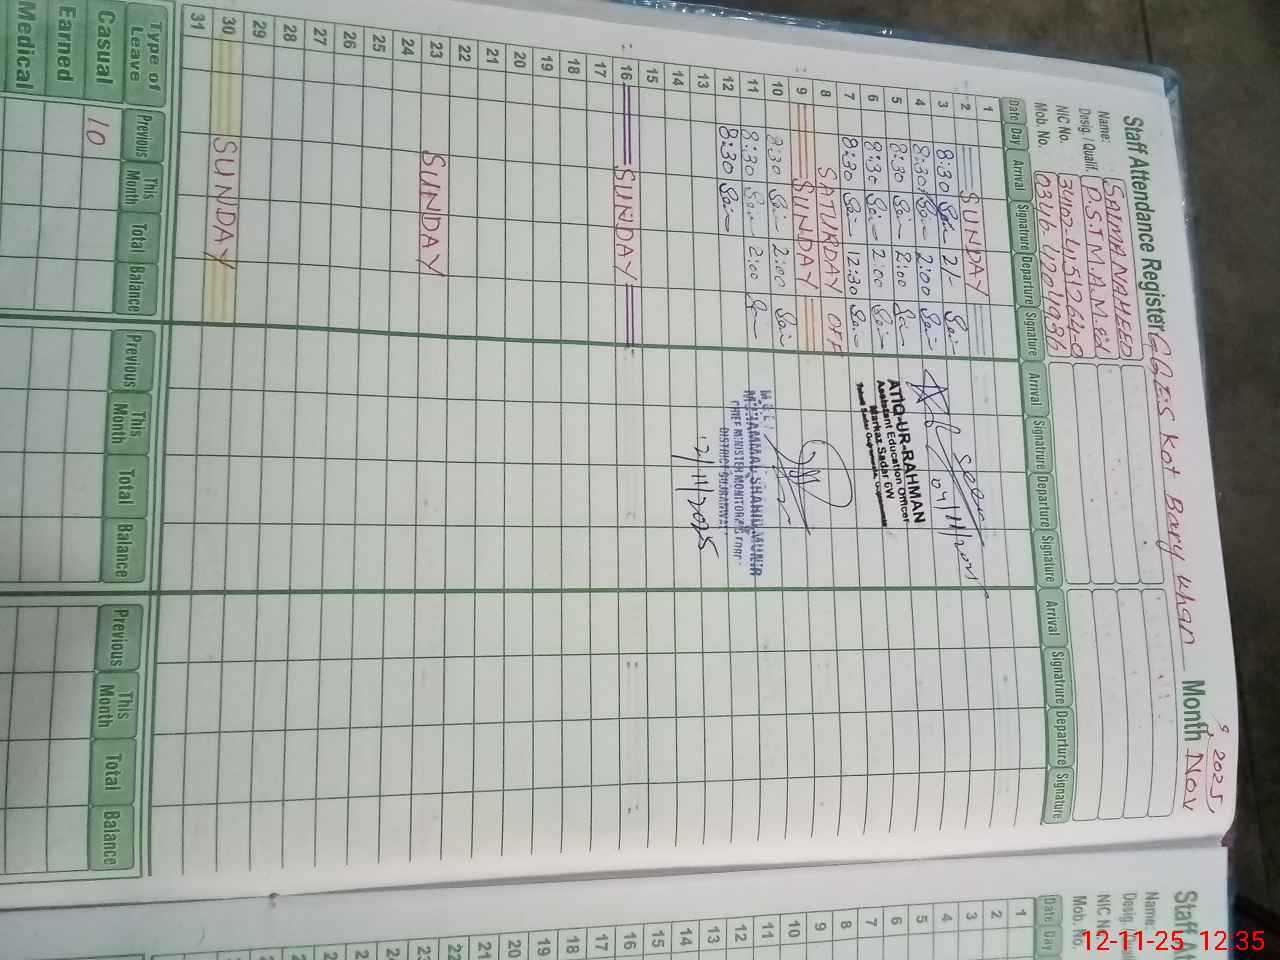 Staff Attendance Register GGES Kot Bary Khan Month Nov, 2025
Name: SALMA NAHEED
Desig. / Qualif. P.S.T M.A.M.ed
NIC No.
Mob. No.
Date Day Arrival Signatrure Departure Signature Arrival Signatrure Departure Signature Arrival Signatrure Departure Signature
1
2 SUNDAY
3 8:30 2/-
4 8:30 2:00
5 8:30 2:00
6 8:30 2:00
7 8:30 12:30
8 SATURDAY OFF
9 SUNDAY
10 8:30 2:00
11 8:30 2:00
12 8:30
13
14
15
16 SUNDAY
17
18
19
20
21
22
23 SUNDAY
24
25
26
27
28
29
30 SUNDAY
31
seen
ATIQ-UR-RAHMAN
Assistant Education Officer
Markaz Sadar GW
MUHAMMAD SHAHID MUNIR
CHIEF MINISTER MONITORING FORCE
DISTRICT GUJRANWALA
12/11/2025
Type of Leave Previous This Month Total Balance Previous This Month Total Balance Previous This Month Total Balance
Casual 10
Earned
Medical
Staff A
Name:
Desig.
NIC N
Mob. No.
Date Day
1
2
3
4
5
6
7
8
9
10
11
12
13
14
15
16
17
18
19
20
21
22
23
24
12-11-25 12:35